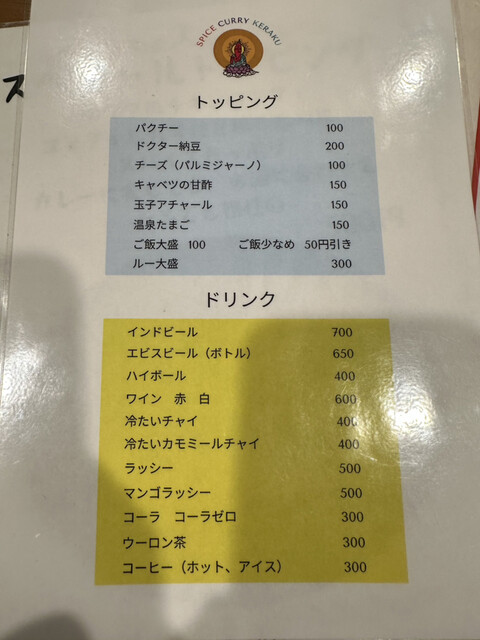 SPICE CURRY KERAKU
トッピング
パクチー 100
ドクター納豆 200
チーズ（パルミジャーノ） 100
キャベツの甘酢 150
玉子アチャール 150
温泉たまご 150
ご飯大盛 100 ご飯少なめ 50円引き
ルー大盛 300
ドリンク
インドビール 700
エビスビール（ボトル） 650
ハイボール 400
ワイン 赤 白 600
冷たいチャイ 400
冷たいカモミールチャイ 400
ラッシー 500
マンゴラッシー 500
コーラ コーラゼロ 300
ウーロン茶 300
コーヒー（ホット、アイス） 300